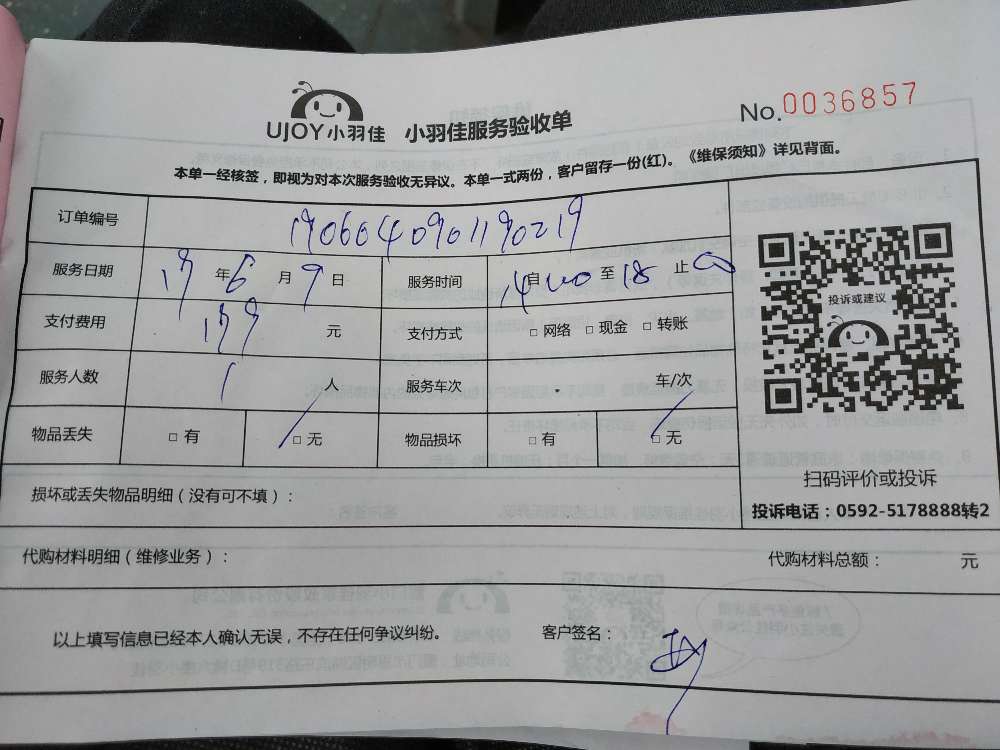 UJOY小羽佳 小羽佳服务验收单 No.0036857
本单一经核签，即视为对本次服务验收无异议。本单一式两份，客户留存一份(红)。《维保须知》详见背面。
订单编号 1906040901190219
服务日期 19 年 6 月 9 日 服务时间 自 14 00 至 18 止 00
支付费用 199 元 支付方式 □ 网络 □ 现金 □ 转账
服务人数 1 人 服务车次 车/次
物品丢失 □ 有 □ 无 物品损坏 □ 有 □ 无
投诉或建议
扫码评价或投诉
投诉电话：0592-5178888转2
损坏或丢失物品明细（没有可不填）：
代购材料明细（维修业务）： 代购材料总额： 元
以上填写信息已经本人确认无误，不存在任何争议纠纷。 客户签名：